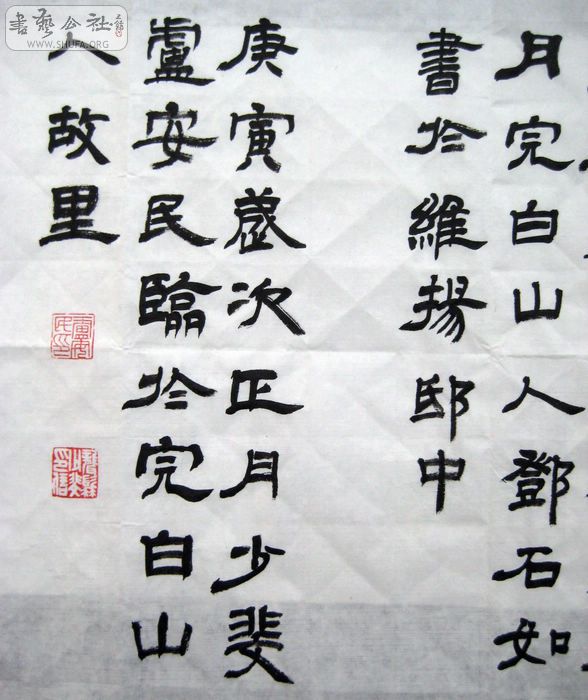 月完白山人鄧石如
書於維揚邸中
庚寅歲次正月少斐
盧安民臨於完白山
人故里
書藝公社
WWW.SHUFA.ORG